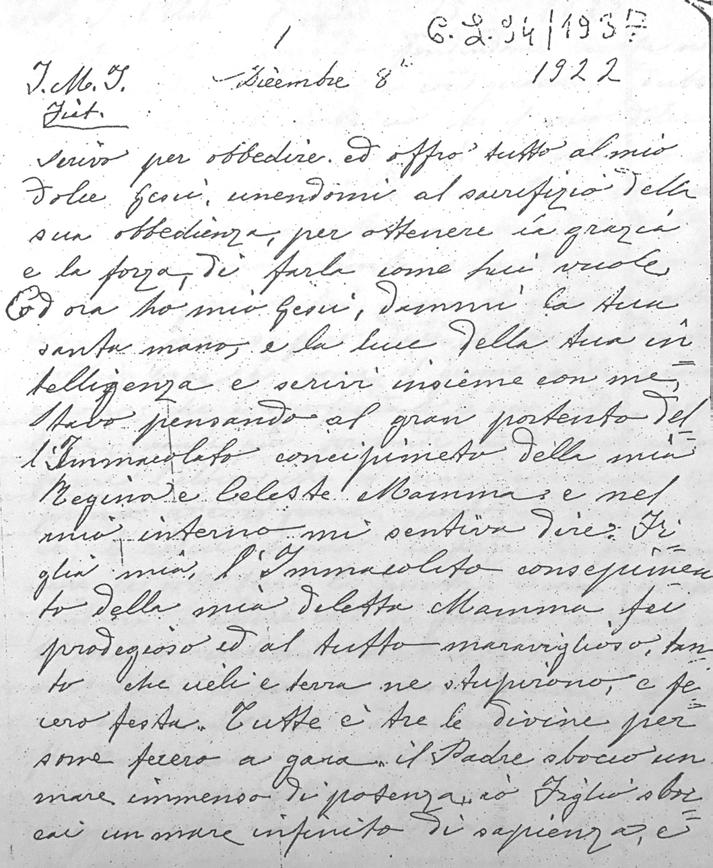 1 G. L. 34/1937
J. M. J. Dicembre 8 1922
Fiat.
Scrivo per obbedire. ed offro tutto al mio
dolce Gesù, unendomi al sacrifizio della
sua obbedienza, per ottenere la grazia
e la forza, di farla come lui vuole,
ed ora ho mio Gesù, dammi la tua
santa mano, e la luce della tua in=
telligenza e scrivi insieme con me,
Stavo pensando al gran portento del=
l'Immacolato concipimeto della mia
Regina e Celeste Mamma: e nel
mio interno mi sentiva dire: Fi=
glia mia, l'Immacolato consepimen
to della mia diletta Mamma fui
prodegioso ed al tutto maraviglioso, tan=
to che cieli e terra ne stupirono, e fe=
cero festa. Tutte è tre le divine per
sone fecero a gara, il Padre sboccò un
mare immenso di potenza, iò Figlio sboc=
cai un mare infinito di sapienza, e